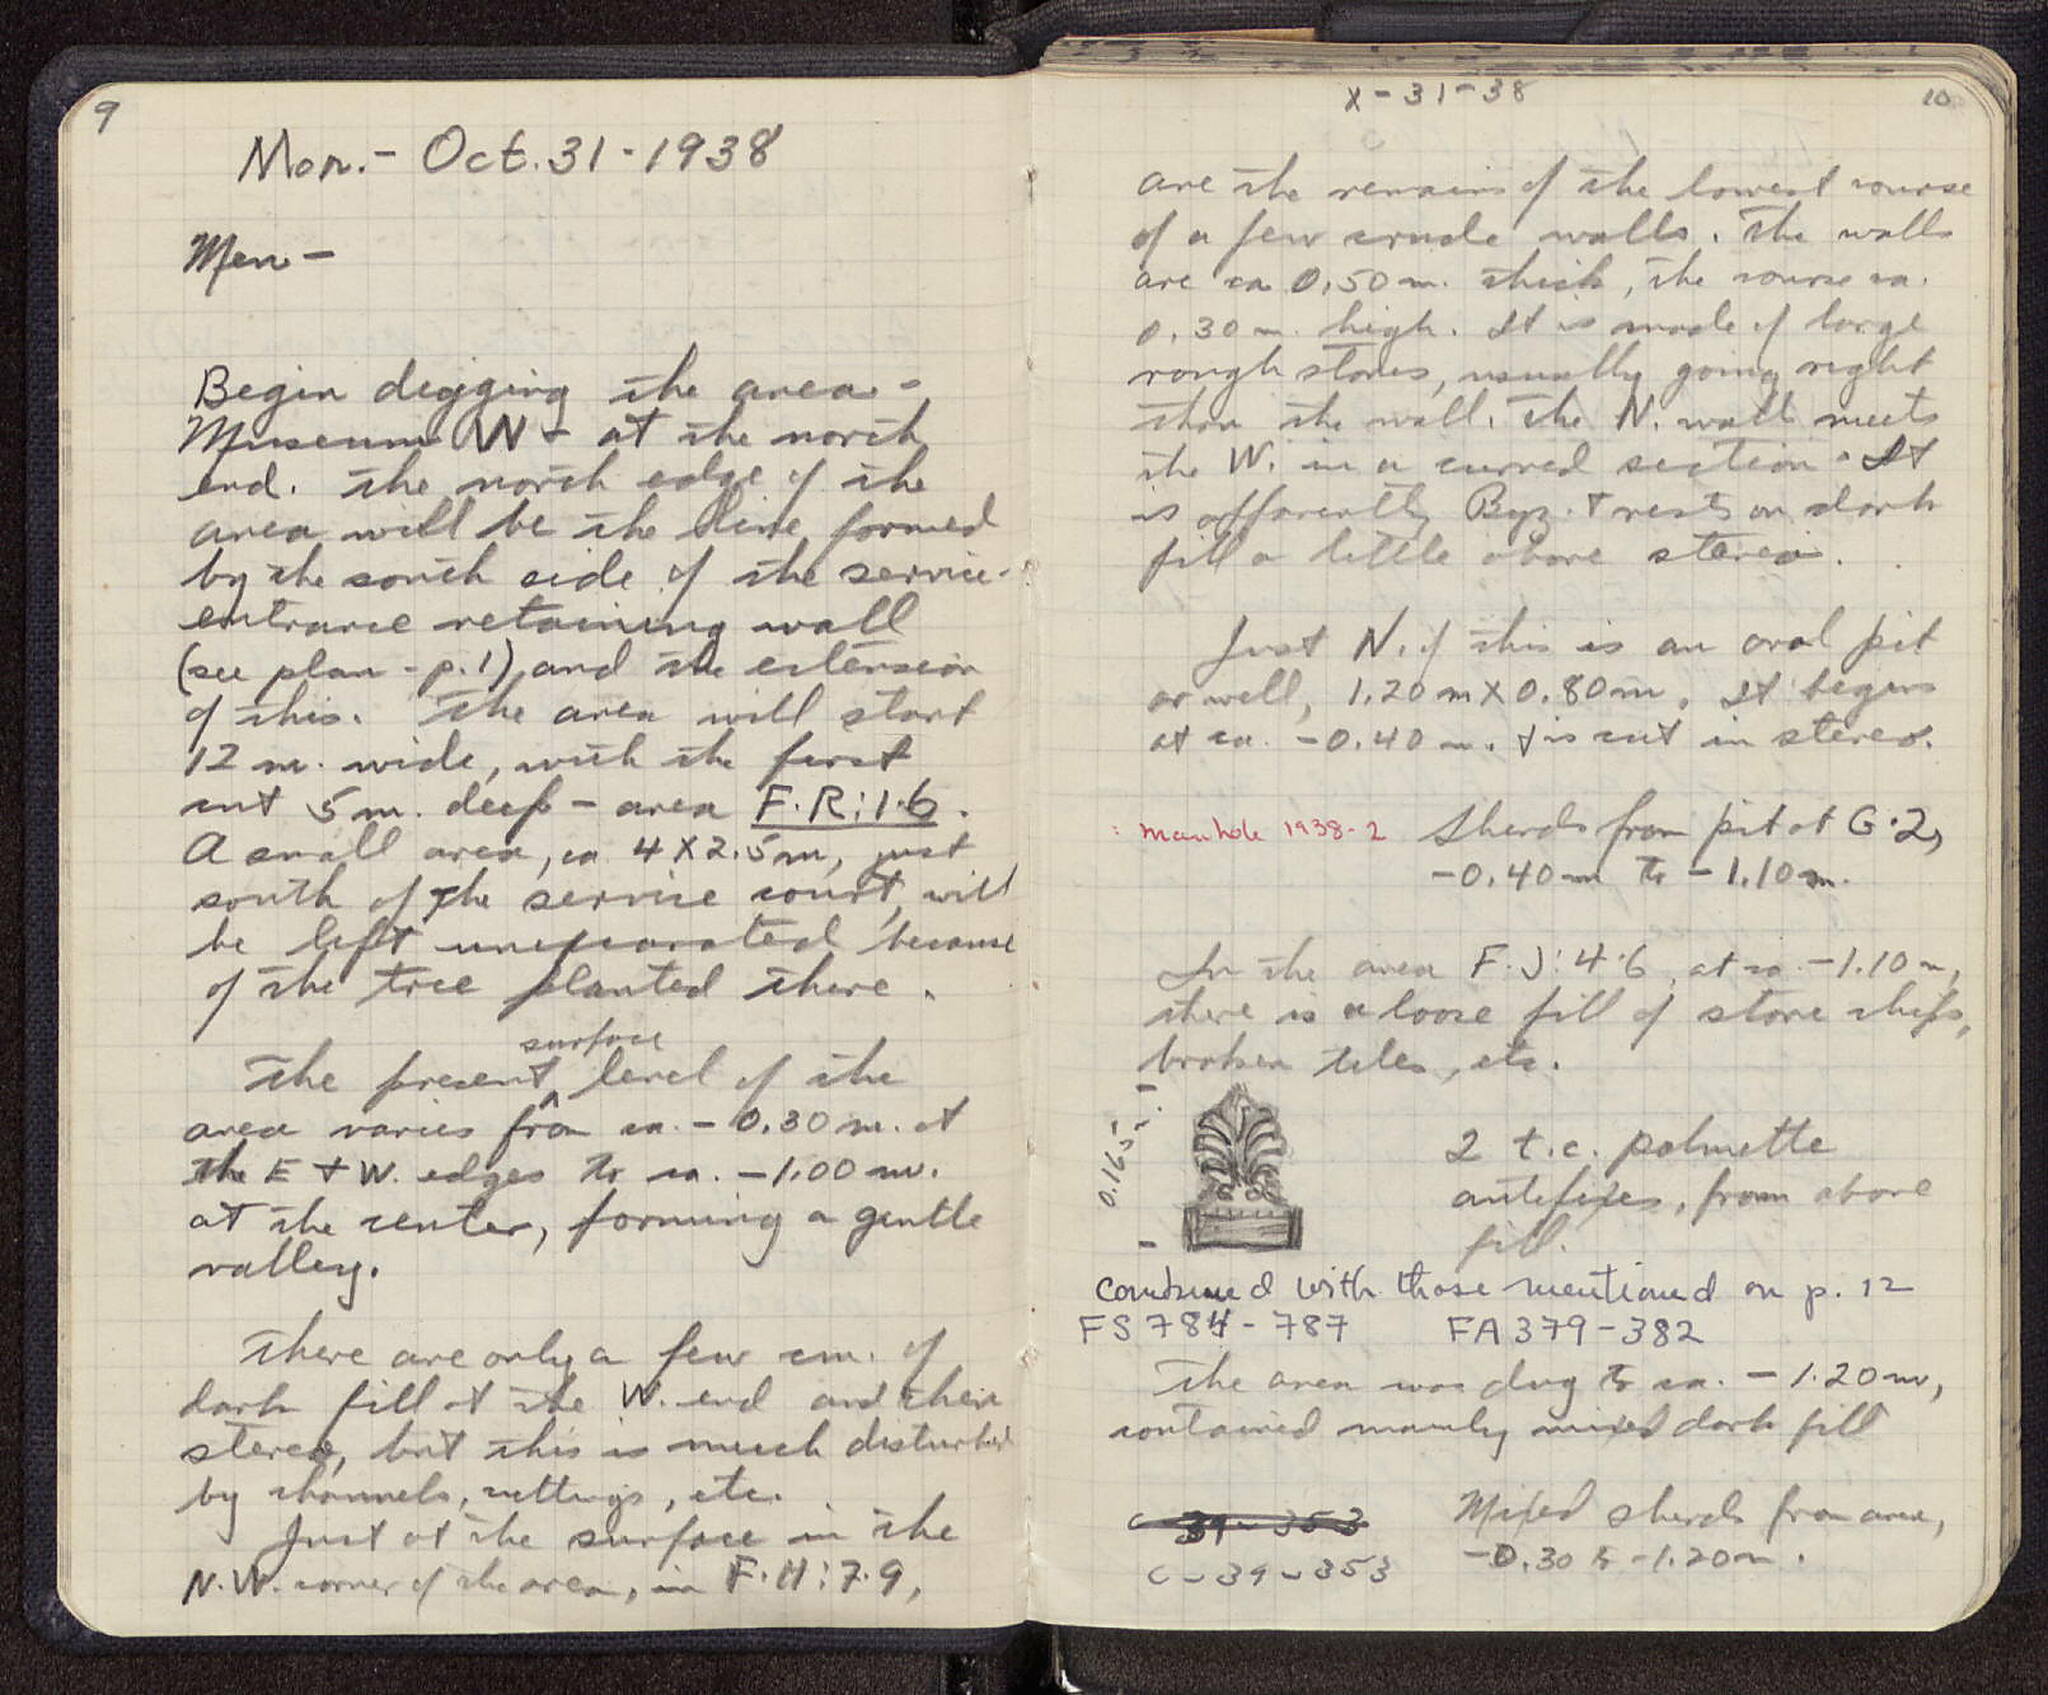 9
Mon.- Oct. 31 - 1938
Men -
Begin digging the area -
Museum W - at the north
end. The north edge of the
area will be the line formed
by the south side of the service-
entrance retaining wall
(see plan - p. 1) and the extension
of this. The area will start
12 m. wide, with the first
cut 5 m. deep - area F·R:1·6.
A small area, ca 4 X 2.5m, just
south of the service court, will
be left unexcavated because
of the tree planted there.
surface
The present ^ level of the
area varies from ca. - 0.30 m. at
the E + W. edges to ca. - 1.00 m.
at the center, forming a gentle
valley.
There are only a few cm. of
dark fill at the W. end and then
stereo, but this is much disturbed
by channels, cuttings, etc.
Just at the surface in the
N.W. corner of the area, in F·H:7·9,
X - 31 - 38
10
are the remains of the lowest course
of a few crude walls. The walls
are ca 0.50 m. thick, the course ca.
0.30 m. high. It is made of large
rough stones, usually going right
thru the wall. The N. wall meets
the W. in a curved section. It
is apparently Byz. + rests on dark
fill a little above stereo.
Just N. of this is an oval pit
or well, 1.20 m X 0.80 m. It begins
at ca. - 0.40 m. + is cut in stereo.
: Manhole 1938-2 Sherds from pit at G·2,
- 0.40 m to - 1.10 m.
In the area F·J:4·6, at ca. - 1.10 m,
there is a loose fill of stone chips,
broken tiles, etc.
0.165 m.
2 t.c. palmette
antefixes, from above
fill.
Combined with those mentioned on p. 12
FS 784 - 787 FA 379 - 382
The area was dug to ca. - 1.20 m,
contained mainly mixed dark fill
C - 39 - 353 Mixed sherds from area,
C - 39 - 353 - 0.30 to - 1.20 m.